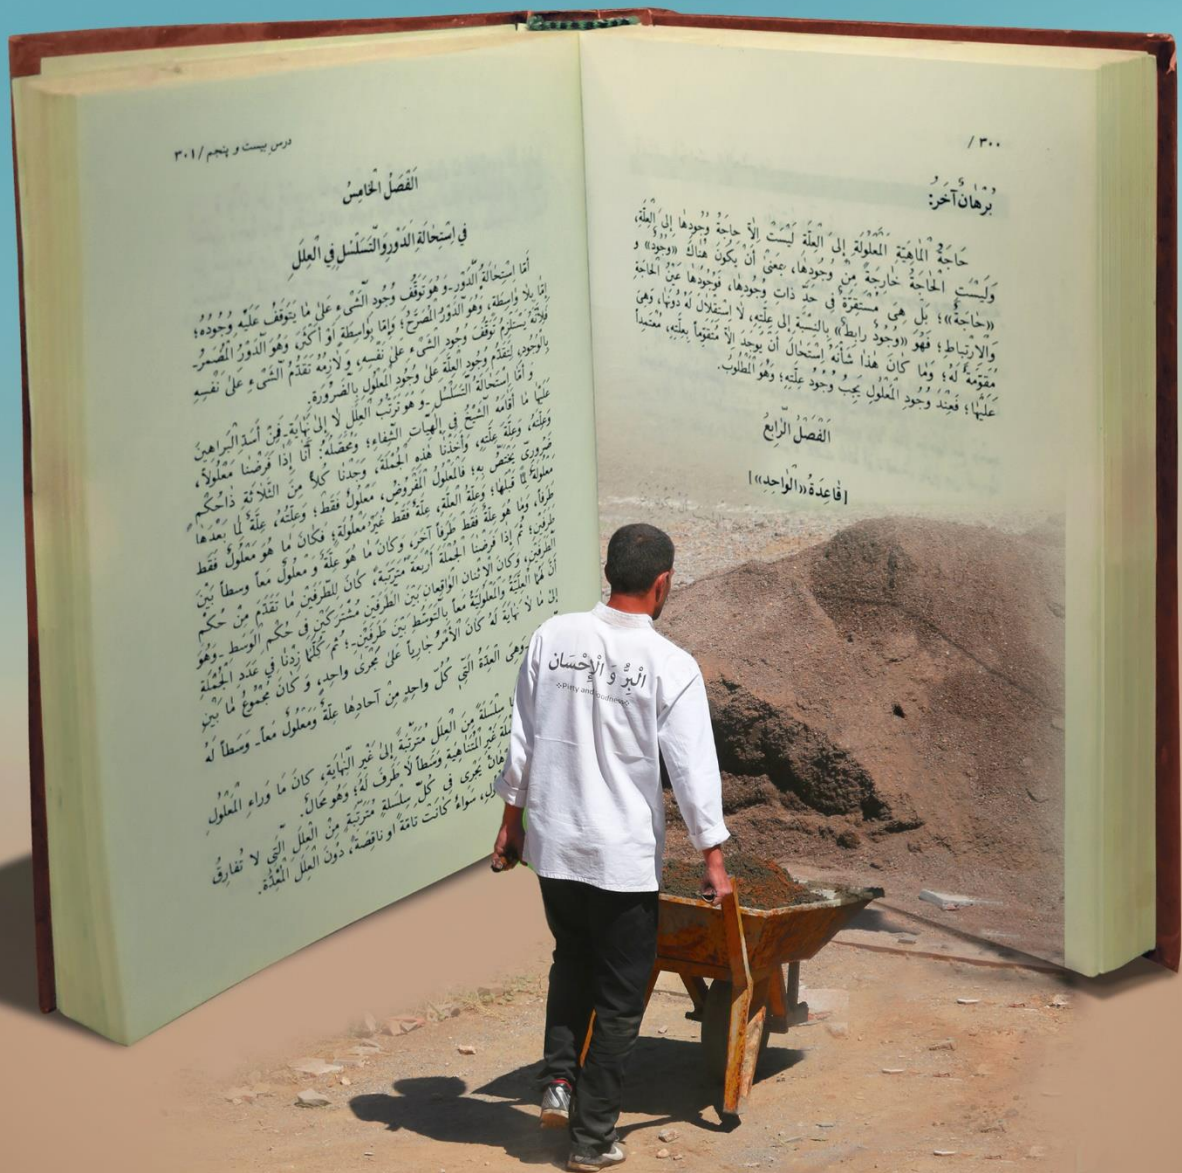 / ۳۰۰
بُرْهانٌ آخَرُ:
حَاجَةُ الْمَاهِيَّةِ الْمَعْلُولَةِ إِلَى الْعِلَّةِ لَيْسَتْ إِلَّا حَاجَةُ وُجُودِهَا إِلَى الْعِلَّةِ،
وَلَيْسَتِ الْحَاجَةُ خَارِجَةً مِنْ وُجُودِهَا، بِمَعْنَى أَنْ يَكُونَ هُنَاكَ «وُجُودٌ» وَ
«حَاجَةٌ»؛ بَلْ هِيَ مُسْتَقِرَّةٌ فِي حَدِّ ذَاتِ وُجُودِهَا، فَوُجُودُهَا عَيْنُ الْحَاجَةِ
وَالْاِرْتِبَاطِ؛ فَهُوَ «وُجُودٌ رَابِطٌ» بِالنِّسْبَةِ إِلَى عِلَّتِهِ، لَا اسْتِقْلَالَ لَهُ دُونَهَا، وَهِيَ
مُقَوِّمَةٌ لَهُ؛ وَمَا كَانَ هٰذَا شَأْنَهُ اِسْتَحَالَ أَنْ يُوجَدَ إِلَّا مُتَقَوِّماً بِعِلَّتِهِ، مُعْتَمِداً
عَلَيْهَا؛ فَعِنْدَ وُجُودِ الْمَعْلُولِ يَجِبُ وُجُودُ عِلَّتِهِ؛ وَهُوَ الْمَطْلُوبُ.
اَلْفَصْلُ الرَّابِعُ
[قَاعِدَةُ «الْوَاحِدِ»]
درس بیست و پنجم / ۳۰۱
اَلْفَصْلُ الْخَامِسُ
فِي اِسْتِحَالَةِ الدَّوْرِ وَالتَّسَلْسُلِ فِي الْعِلَلِ
أَمَّا اسْتِحَالَةُ الدَّوْرِ ـ وَهُوَ تَوَقُّفُ وُجُودِ الشَّيْءِ عَلَى مَا يَتَوَقَّفُ عَلَيْهِ وُجُودُهُ؛
إِمَّا بِلَا وَاسِطَةٍ، وَهُوَ الدَّوْرُ الْمُصَرَّحُ؛ وَإِمَّا بِوَاسِطَةٍ أَوْ أَكْثَرَ، وَهُوَ الدَّوْرُ الْمُضْمَرُ ـ
فَلِأَنَّهُ يَسْتَلْزِمُ تَوَقُّفَ وُجُودِ الشَّيْءِ عَلَى نَفْسِهِ، وَلَازِمُهُ تَقَدُّمُ الشَّيْءِ عَلَى نَفْسِهِ
بِالْوُجُودِ، لِتَقَدُّمِ وُجُودِ الْعِلَّةِ عَلَى وُجُودِ الْمَعْلُولِ بِالضَّرُورَةِ.
وَ أَمَّا اسْتِحَالَةُ التَّسَلْسُلِ ـ وَ هُوَ تَرَتُّبُ الْعِلَلِ لَا إِلَى نِهَايَةٍ ـ فَمِنْ أَسَدِّ الْبَرَاهِينِ
عَلَيْهَا مَا أَقَامَهُ الشَّيْخُ فِي إِلٰهِيَّاتِ الشِّفَاءِ؛ وَمُحَصَّلُهُ: أَنَّا إِذَا فَرَضْنَا مَعْلُولاً،
وَعِلَّتَهُ، وَعِلَّةَ عِلَّتِهِ، وَأَخَذْنَا هٰذِهِ الْجُمْلَةَ، وَجَدْنَا كُلاًّ مِنَ الثَّلَاثَةِ ذَا حُكْمٍ
ضَرُورِيٍّ يَخْتَصُّ بِهِ؛ فَالْمَعْلُولُ الْمَفْرُوضُ، مَعْلُولٌ فَقَطْ؛ وَعِلَّتُهُ، عِلَّةٌ لِمَا بَعْدَهَا
مَعْلُولَةٌ لِمَا قَبْلَهَا؛ وَعِلَّةُ الْعِلَّةِ، عِلَّةٌ فَقَطْ غَيْرُ مَعْلُولَةٍ؛ فَكَانَ مَا هُوَ مَعْلُولٌ فَقَطْ
طَرَفاً، وَمَا هُوَ عِلَّةٌ فَقَطْ طَرَفاً آخَرَ، وَكَانَ مَا هُوَ عِلَّةٌ وَ مَعْلُولٌ مَعاً وَسَطاً بَيْنَ
طَرَفَيْنِ؛ ثُمَّ إِذَا فَرَضْنَا الْجُمْلَةَ أَرْبَعَةً مُتَرَتِّبَةً، كَانَ لِلطَّرَفَيْنِ مَا تَقَدَّمَ مِنْ حُكْمِ
الطَّرَفَيْنِ، وَكَانَ الِاثْنَانِ الْوَاقِعَانِ بَيْنَ الطَّرَفَيْنِ مُشْتَرِكَيْنِ فِي حُكْمِ الْوَسَطِ ـ وَهُوَ
أَنَّ لَهُمَا الْعِلِّيَّةَ وَالْمَعْلُولِيَّةَ مَعاً بِالتَّوَسُّطِ بَيْنَ طَرَفَيْنِ ـ؛ ثُمَّ كُلَّمَا زِدْنَا فِي عَدَدِ الْجُمْلَةِ
إِلَى مَا لَا نِهَايَةَ لَهُ كَانَ الْأَمْرُ جَارِياً عَلَى مَجْرًى وَاحِدٍ، وَ كَانَ مَجْمُوعُ مَا بَيْنَ
وَهِيَ الْعِدَّةُ الَّتِي كُلُّ وَاحِدٍ مِنْ آحَادِهَا عِلَّةٌ وَمَعْلُولٌ مَعاً ـ وَسَطاً لَهُ
سِلْسِلَةً مِنَ الْعِلَلِ مُتَرَتِّبَةً إِلَى غَيْرِ النِّهَايَةِ، كَانَ مَا وَرَاءَ الْمَعْلُولِ
غَيْرِ الْمُتَنَاهِيَةِ وَسَطاً لَا طَرَفَ لَهُ؛ وَهُوَ مُحَالٌ.
يَجْرِي فِي كُلِّ سِلْسِلَةٍ مُتَرَتِّبَةٍ مِنَ الْعِلَلِ الَّتِي لَا تُفَارِقُ
سَوَاءٌ كَانَتْ تَامَّةً أَوْ نَاقِصَةً، دُونَ الْعِلَلِ الْمُعِدَّةِ.
الْبِرُّ وَ الْإِحْسَان
Piety and